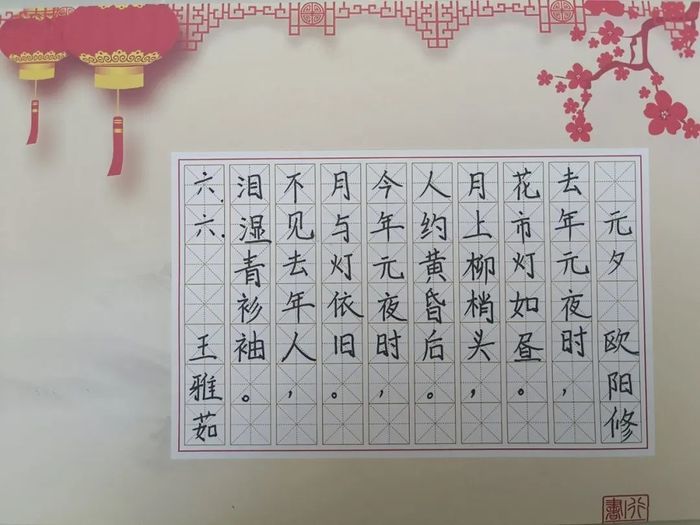 元夕 欧阳修
去年元夜时，
花市灯如昼。
月上柳梢头，
人约黄昏后。
今年元夜时，
月与灯依旧。
不见去年人，
泪湿青衫袖。
六.六. 王雅茹